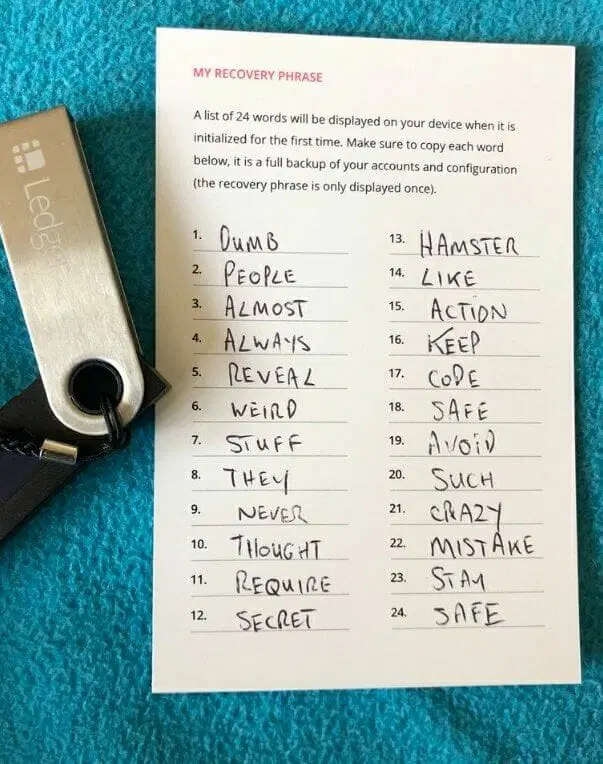 Ledge
MY RECOVERY PHRASE
A list of 24 words will be displayed on your device when it is
initialized for the first time. Make sure to copy each word
below, it is a full backup of your accounts and configuration
(the recovery phrase is only displayed once).
1. DUMB
2. PEOPLE
3. ALMOST
4. ALWAYS
5. REVEAL
6. WEIRD
7. STUFF
8. THEY
9. NEVER
10. THOUGHT
11. REQUIRE
12. SECRET
13. HAMSTER
14. LIKE
15. ACTION
16. KEEP
17. CODE
18. SAFE
19. AVOID
20. SUCH
21. CRAZY
22. MISTAKE
23. STAY
24. SAFE